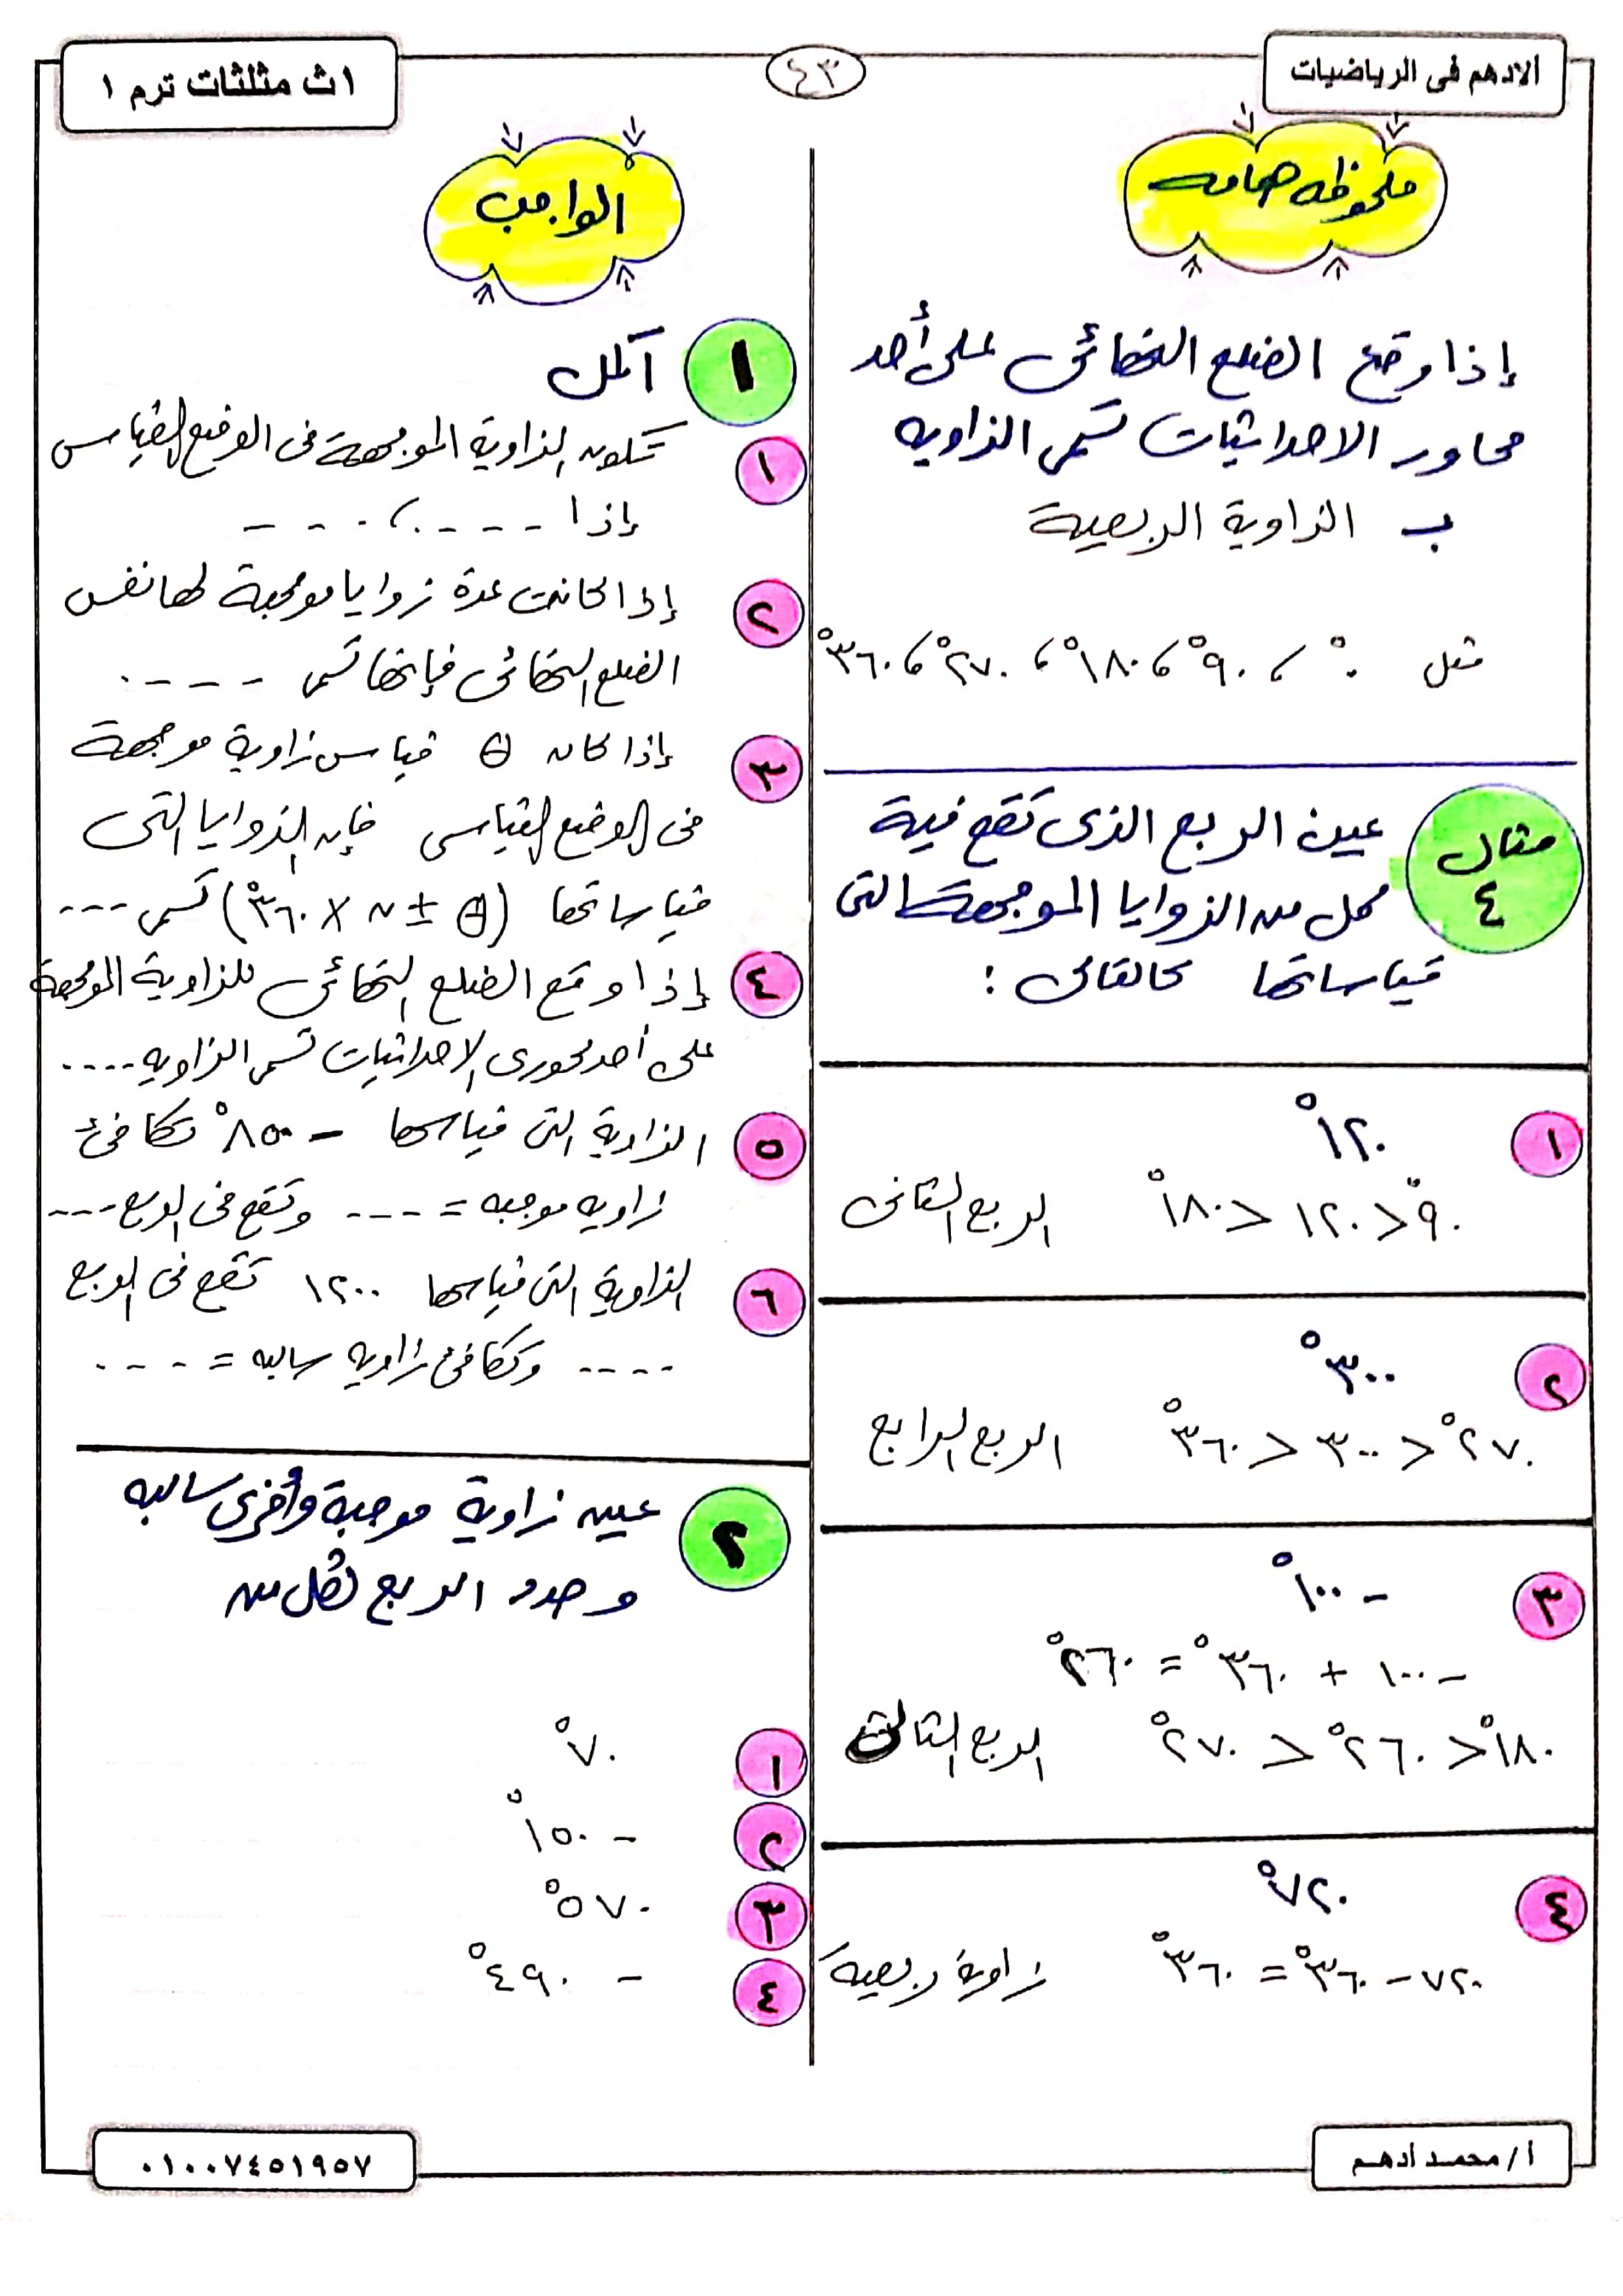 الادهم فى الرياضيات
٤٣
١ث مثلثات ترم ١
ملحوظه هامه
إذا وقع الضلع النهائى على أحد
محاور الاحداثيات تسمى الزاويه
بـ الزاوية الربعية
مثل ٠° ، ٩٠° ، ١٨٠° ، ٢٧٠° ، ٣٦٠°
مثال ٤
عين الربع الذى تقع فية
كل من الزوايا الموجهة التى
قياساتها كالتالى :
١ ١٢٠°
٩٠° < ١٢٠ < ١٨٠° الربع الثانى
٢ ٣٠٠°
٢٧٠° < ٣٠٠ < ٣٦٠° الربع الرابع
٣ - ١٠٠°
- ١٠٠ + ٣٦٠° = ٢٦٠°
١٨٠° < ٢٦٠° < ٢٧٠° الربع الثالث
٤ ٧٢٠°
٧٢٠ - ٣٦٠° = ٣٦٠° زاوية ربعية
الواجب
١ أكمل
١ تكون الزاوية الموجهة فى الوضع القياسى
إذا - - - - ، - - - -
٢ إذا كانت عدة زوايا موجهة لها نفس
الضلع النهائى فإنها تسمى - - - -
٣ إذا كان θ قياس زاوية موجهة
فى الوضع القياسى فإن الزوايا التى
قياساتها (θ ± ن × ٣٦٠°) تسمى ---
٤ إذا وقع الضلع النهائى للزاوية الموجهة
على أحد محورى الاحداثيات تسمى الزاويه ----
٥ الزاوية التى قياسها - ٨٥٠° تكافئ
زاويه موجبه = ---- وتقع فى الربع ---
٦ الزاوية التى قياسها ١٢٠٠ تقع فى الربع
---- وتكافئ زاويه سالبه = - - - -
٢ عين زاوية موجبة وأخرى سالبه
وحدد الربع لكل من
١ ٧٠°
٢ - ١٥٠°
٣ ٥٧٠°
٤ - ٤٩٠°
أ/ محمد أدهم
٠١٠٠٧٤٥١٩٥٧